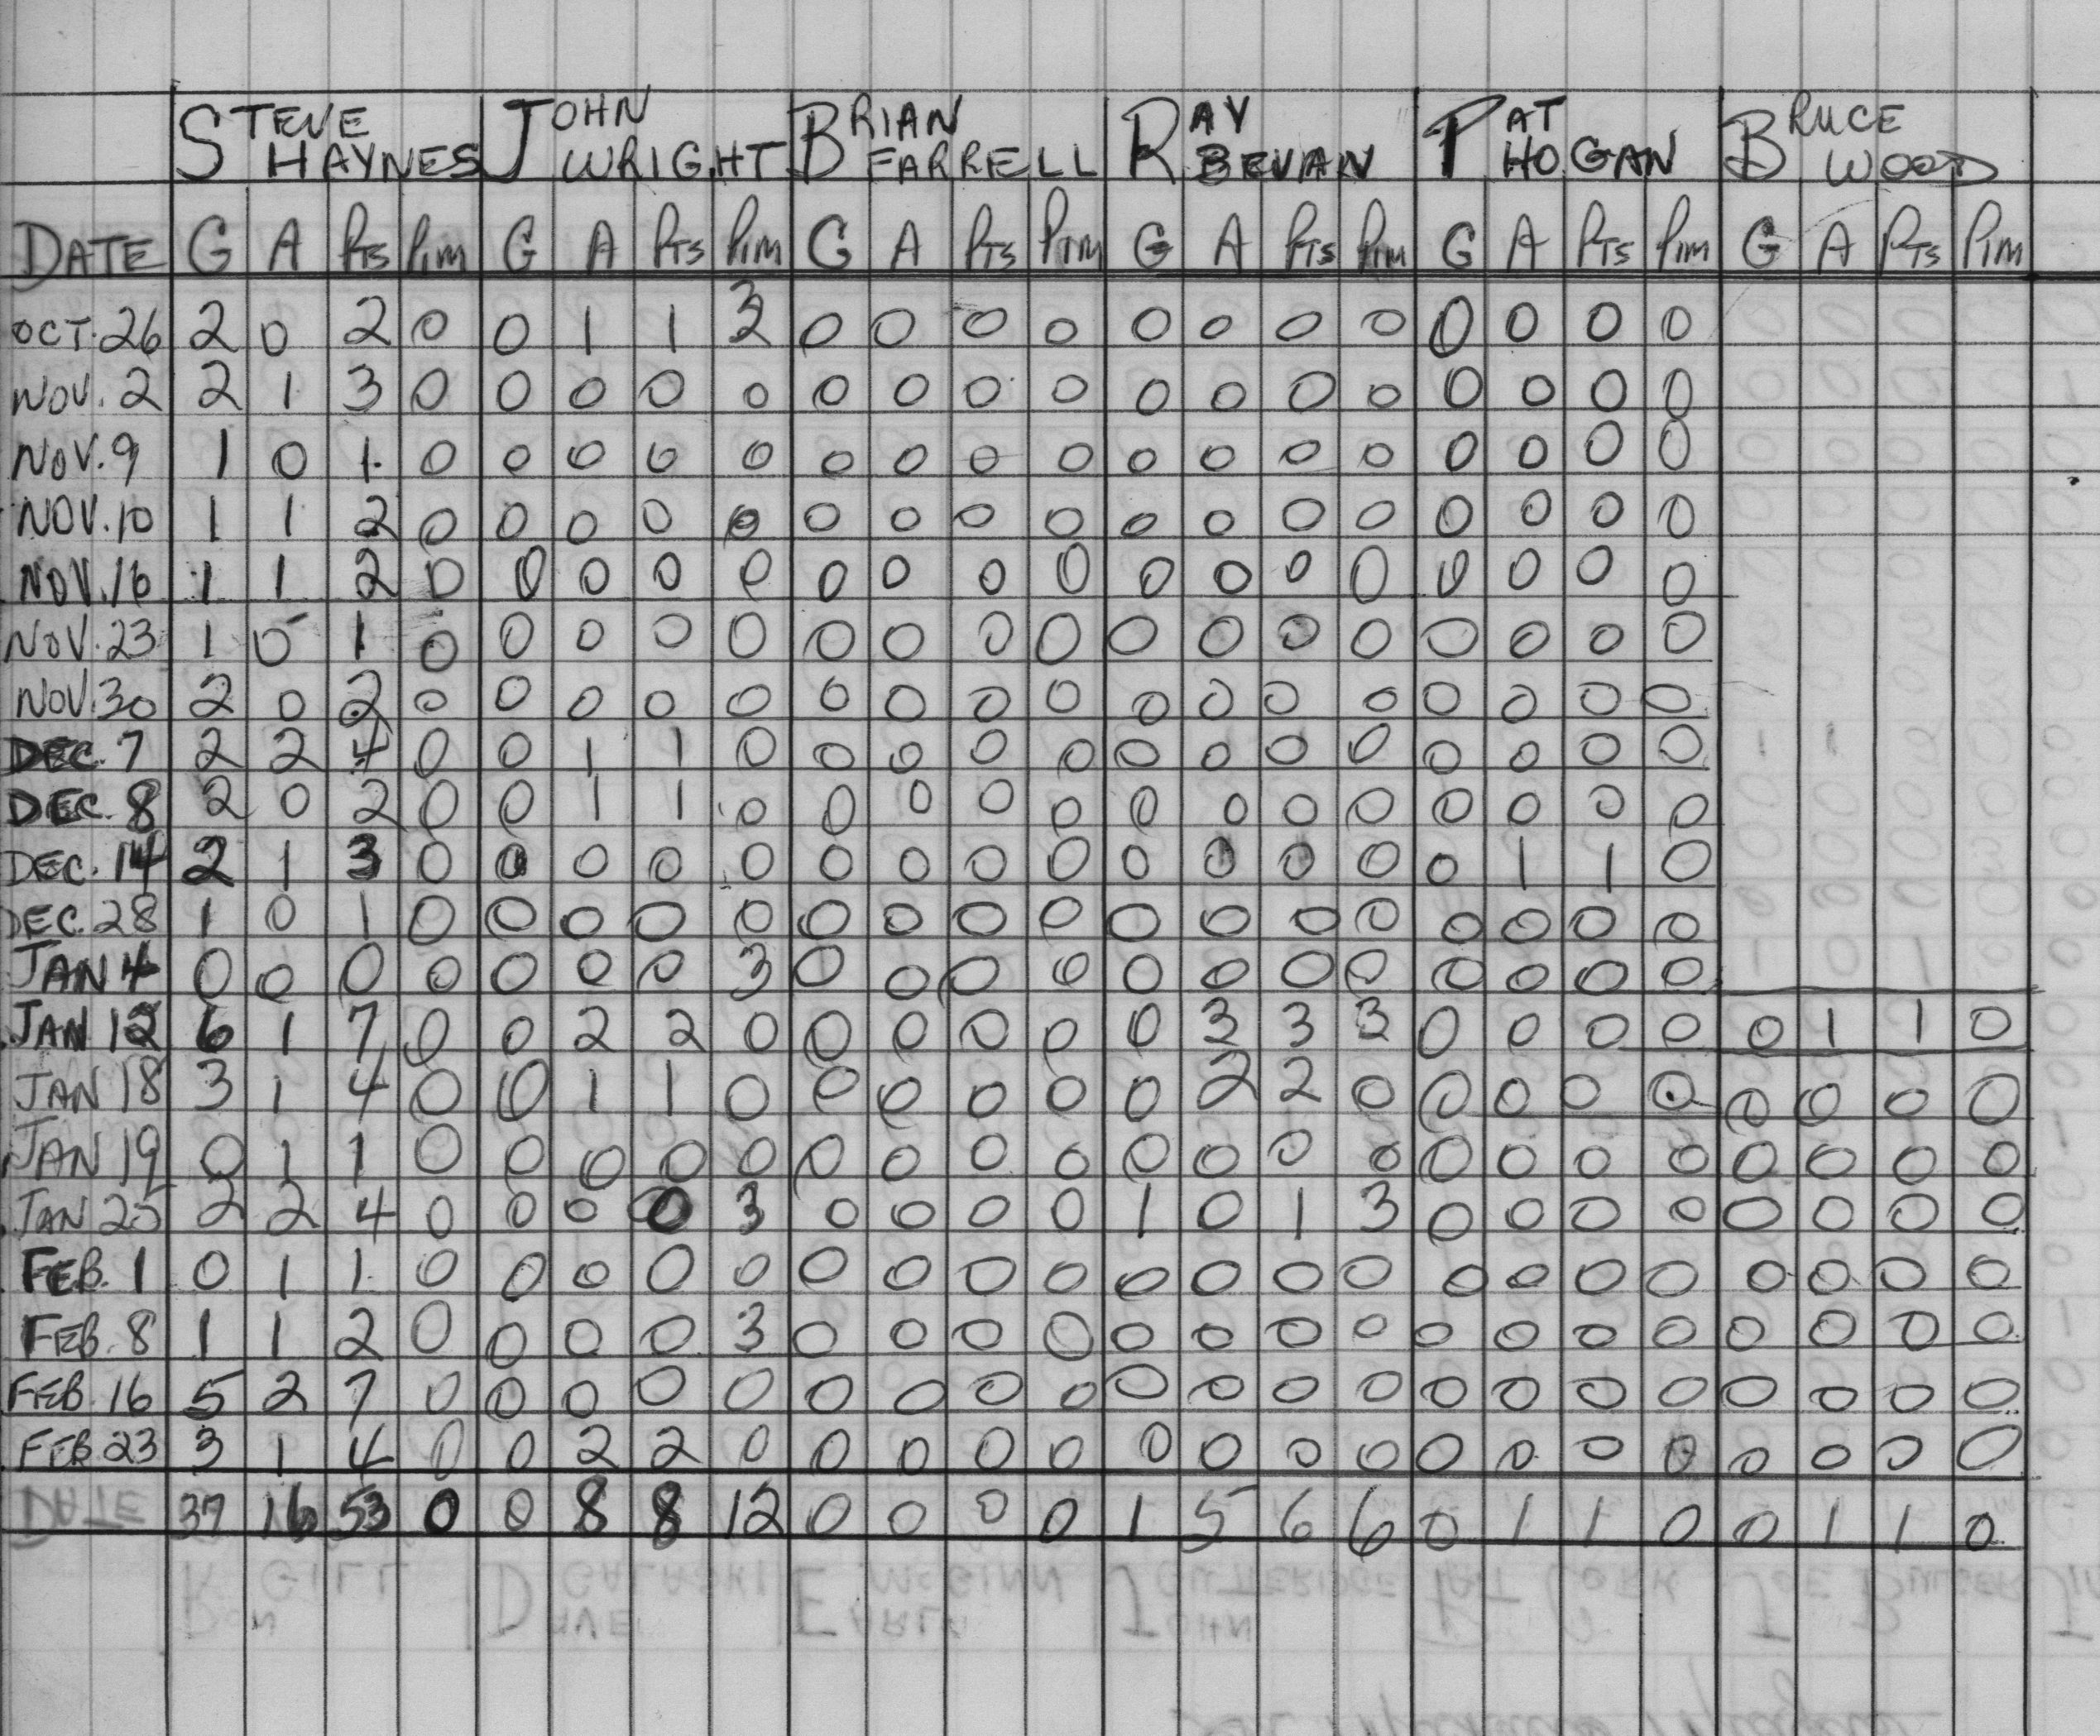 STEVE HAYNES JOHN WRIGHT BRIAN FARRELL RAY BEVAN PAT HOGAN BRUCE WOOD
DATE G A Pts Pim G A Pts Pim G A Pts Pim G A Pts Pim G A Pts Pim G A Pts Pim
OCT. 26 2 0 2 0 0 1 1 3 0 0 0 0 0 0 0 0 0 0 0 0
NOV. 2 2 1 3 0 0 0 0 0 0 0 0 0 0 0 0 0 0 0 0 0
NOV. 9 1 0 1 0 0 0 0 0 0 0 0 0 0 0 0 0 0 0 0 0
NOV. 10 1 1 2 0 0 0 0 0 0 0 0 0 0 0 0 0 0 0 0 0
NOV. 16 1 1 2 0 0 0 0 0 0 0 0 0 0 0 0 0 0 0 0 0
NOV. 23 1 0 1 0 0 0 0 0 0 0 0 0 0 0 0 0 0 0 0 0
NOV. 30 2 0 2 0 0 0 0 0 0 0 0 0 0 0 0 0 0 0 0 0
DEC. 7 2 2 4 0 0 1 1 0 0 0 0 0 0 0 0 0 0 0 0 0
DEC. 8 2 0 2 0 0 1 1 0 0 0 0 0 0 0 0 0 0 0 0 0
DEC. 14 2 1 3 0 0 0 0 0 0 0 0 0 0 0 0 0 0 1 1 0
DEC. 28 1 0 1 0 0 0 0 0 0 0 0 0 0 0 0 0 0 0 0 0
JAN 4 0 0 0 0 0 0 0 3 0 0 0 0 0 0 0 0 0 0 0 0
JAN 12 6 1 7 0 0 2 2 0 0 0 0 0 0 3 3 3 0 0 0 0 0 1 1 0
JAN 18 3 1 4 0 0 1 1 0 0 0 0 0 0 2 2 0 0 0 0 0 0 0 0 0
JAN 19 0 1 1 0 0 0 0 0 0 0 0 0 0 0 0 0 0 0 0 0 0 0 0 0
JAN 25 2 2 4 0 0 0 0 3 0 0 0 0 1 0 1 3 0 0 0 0 0 0 0 0
FEB. 1 0 1 1 0 0 0 0 0 0 0 0 0 0 0 0 0 0 0 0 0 0 0 0 0
FEB. 8 1 1 2 0 0 0 0 3 0 0 0 0 0 0 0 0 0 0 0 0 0 0 0 0
FEB. 16 5 2 7 0 0 0 0 0 0 0 0 0 0 0 0 0 0 0 0 0 0 0 0 0
FEB. 23 3 1 4 0 0 2 2 0 0 0 0 0 0 0 0 0 0 0 0 0 0 0 0 0
37 16 53 0 0 8 8 12 0 0 0 0 1 5 6 6 0 1 1 0 0 1 1 0